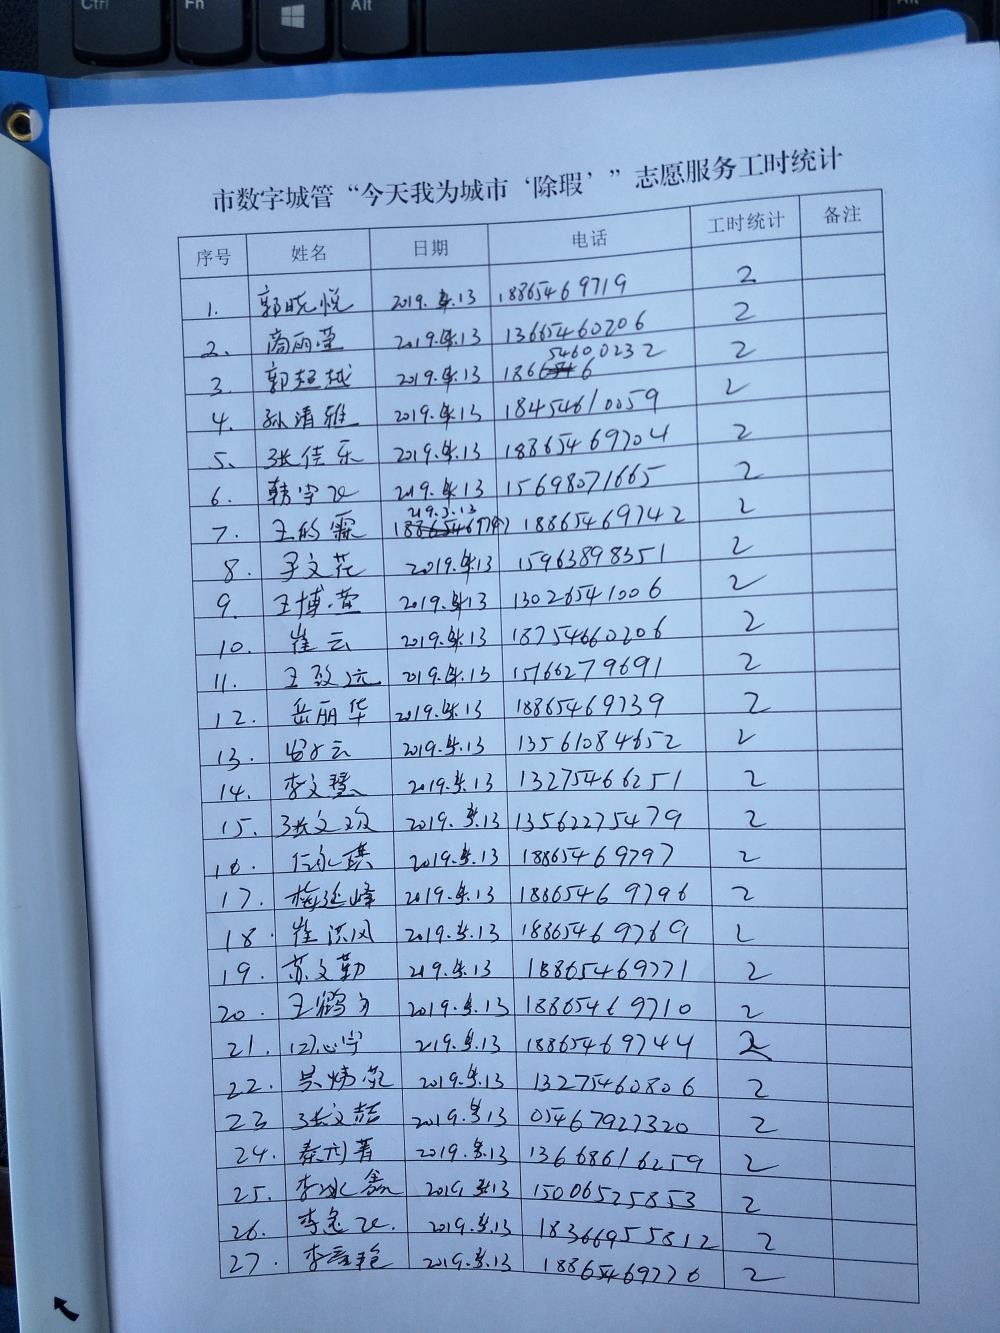 Ctrl Fn Alt Alt
市数字城管“今天我为城市‘除瑕’”志愿服务工时统计
序号 姓名 日期 电话 工时统计 备注
1. 郭晓悦 2019.4.13 18865469719 2
2. 高丽莹 2019.4.13 13665460206 2
3. 郭超越 2019.4.13 186 54600232 2
4. 孙清雅 2019.4.13 18454610059 2
5. 张佳乐 2019.4.13 18865469704 2
6. 韩宇飞 2019.4.13 15698071665 2
7. 王的霖 219.3.13 18865469742 2
8. 文花 2019.4.13 15963898351 2
9. 王博萱 2019.4.13 13026541006 2
10. 崔云 2019.4.13 18754660206 2
11. 王致远 2019.4.13 15166279691 2
12. 岳丽华 2019.4.13 18865469739 2
13. 云 2019.4.13 13561084652 2
14. 李文慧 2019.4.13 13275466251 2
15. 张文 2019.4.13 13562275479 2
16. 任永琪 2019.4.13 18865469797 2
17. 梅延峰 2019.4.13 18865469796 2
18. 崔洪风 2019.4.13 18865469769 2
19. 苏文勤 219.4.13 18865469771 2
20. 王鹤 2019.4.13 18865469710 2
21. 心宇 2019.4.13 18865469744 2
22. 吴炜 2019.4.13 13275460806 2
23 张文喆 2019.4.13 05467927320 2
24. 秦菁 2019.4.13 13668616259 2
25. 李冰鑫 2019.4.13 15006525853 2
26. 李飞 2019.4.13 18366955812 2
27. 李艳 2019.4.13 18865469776 2